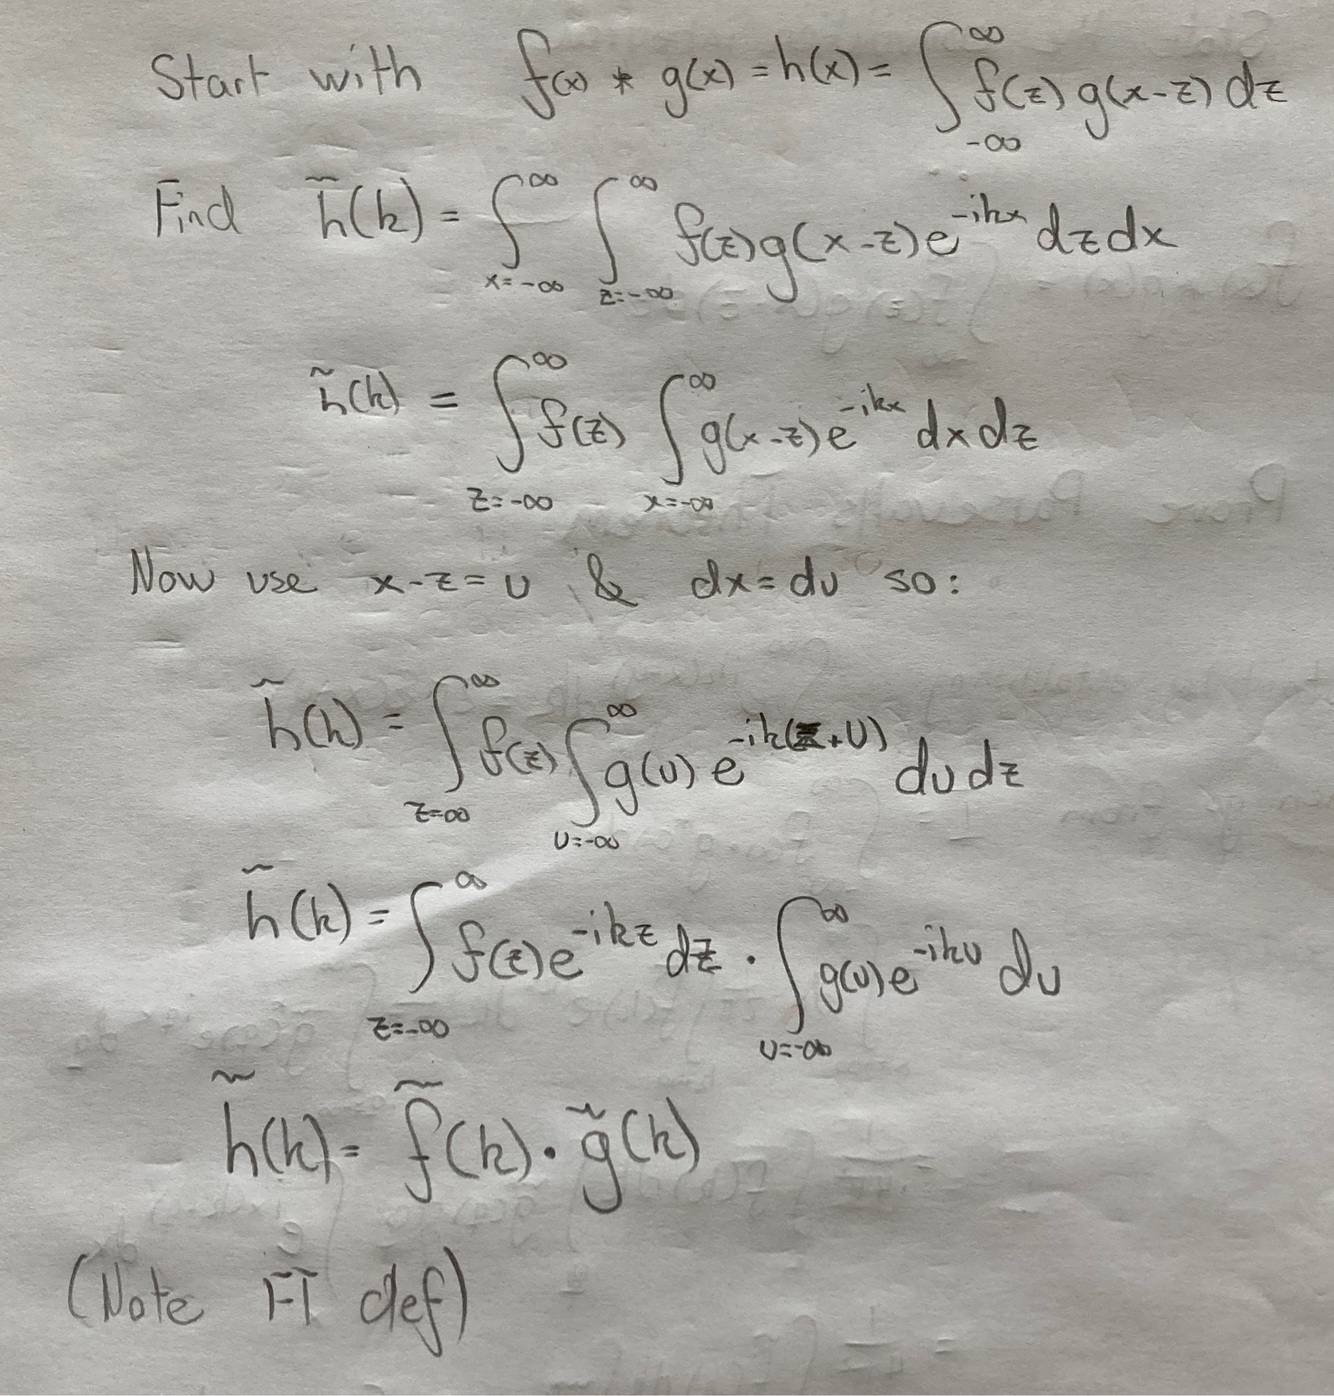 Start with f(x) * g(x) = h(x) = ∫_{-∞}^{∞} f(z) g(x-z) dz
Find h̃(k) = ∫_{x=-∞}^{∞} ∫_{z=-∞}^{∞} f(z) g(x-z) e^{-ikx} dz dx
h̃(k) = ∫_{z=-∞}^{∞} f(z) ∫_{x=-∞}^{∞} g(x-z) e^{-ikx} dx dz
Now use x-z = u & dx = du so:
h̃(k) = ∫_{z=∞}^{∞} f(z) ∫_{u=-∞}^{∞} g(u) e^{-ik(z+u)} du dz
h̃(k) = ∫_{z=-∞}^{∞} f(z) e^{-ikz} dz · ∫_{u=-∞}^{∞} g(u) e^{-iku} du
h̃(k) = f̃(k) · g̃(k)
(Note FT def)